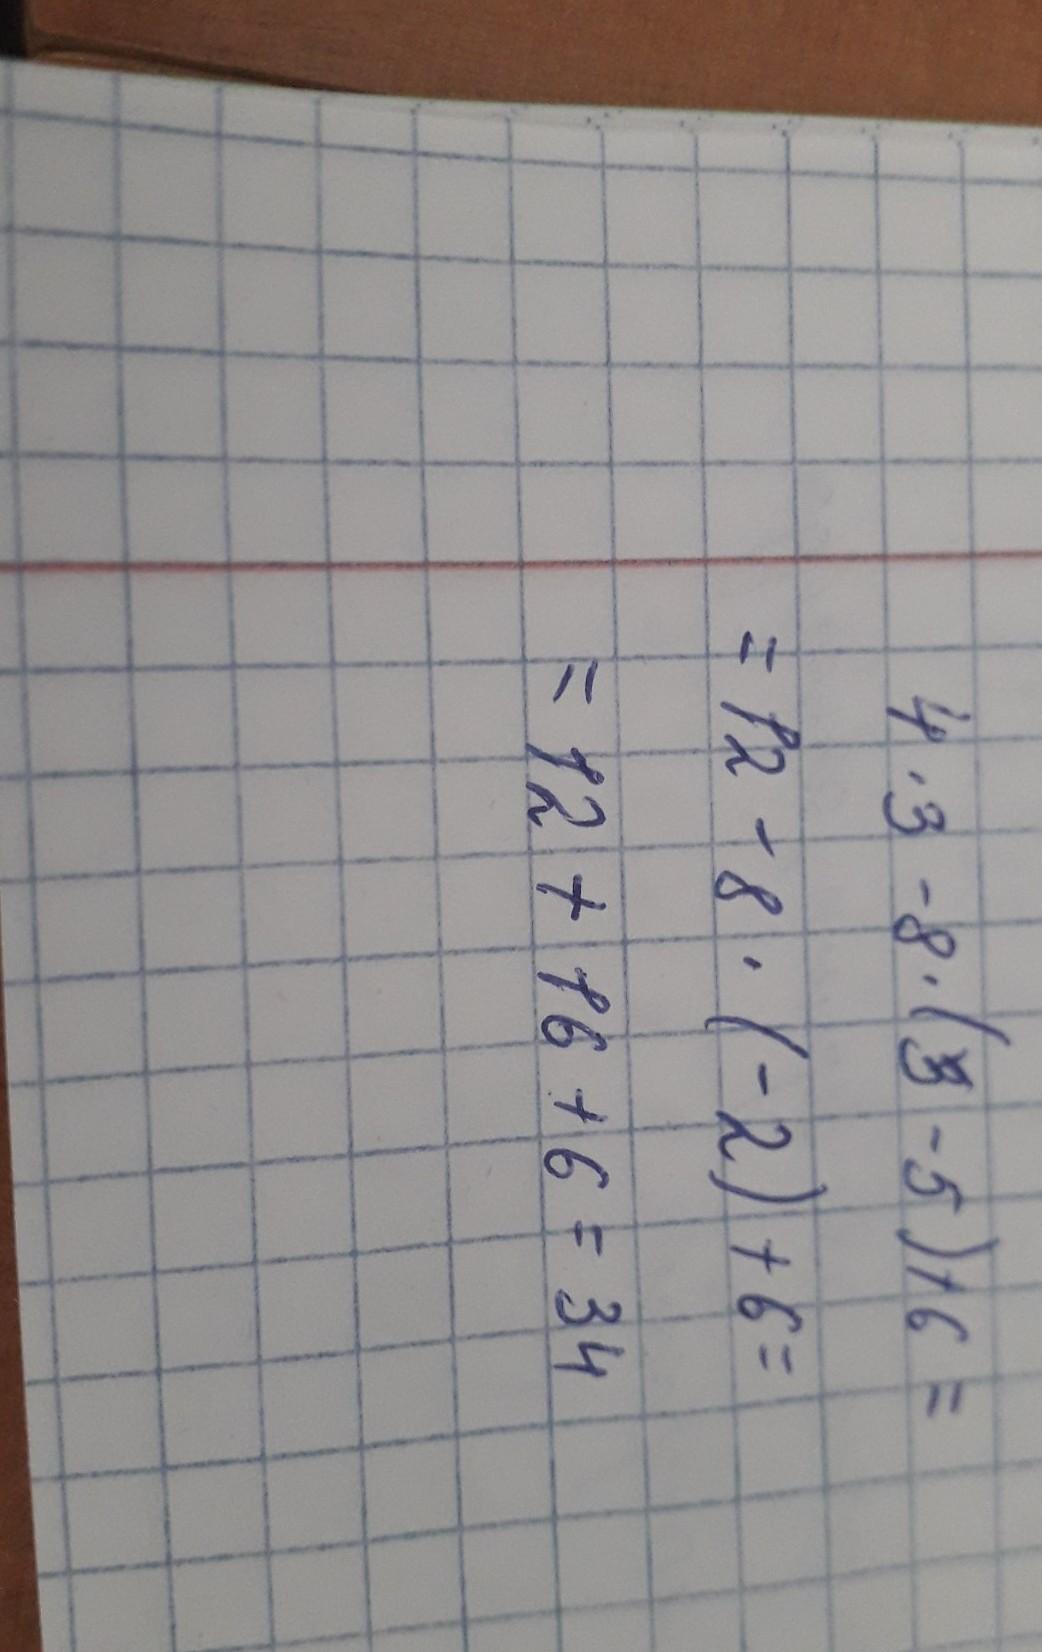 4 · 3 - 8 · (3 - 5) + 6 =
= 12 - 8 · (-2) + 6 =
= 12 + 16 + 6 = 34